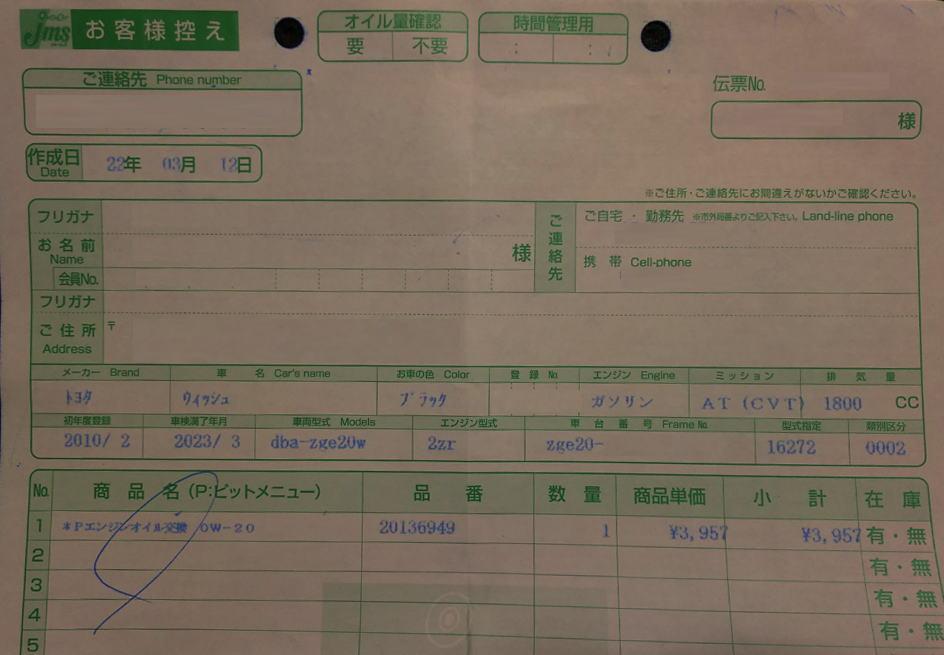 jms お客様控え
オイル量確認
要 不要
時間管理用
: :
ご連絡先 Phone number
伝票No.
様
作成日 Date 22年 03月 12日
※ご住所・ご連絡先にお間違えがないかご確認ください。
フリガナ
お名前 Name 様
会員No.
ご連絡先
ご自宅・勤務先 ※市外局番よりご記入下さい。 Land-line phone
携帯 Cell-phone
フリガナ
ご住所 Address 〒
メーカー Brand 車名 Car's name お車の色 Color 登録No エンジン Engine ミッション 排気量
トヨタ ウィッシュ ブラック ガソリン AT (CVT) 1800 CC
初年度登録 車検満了年月 車両型式 Models エンジン型式 車台番号 Frame No. 型式指定 類別区分
2010/ 2 2023/ 3 dba-zge20w 2zr zge20- 16272 0002
No. 商品名 (P:ピットメニュー) 品番 数量 商品単価 小計 在庫
1 *Pエンジンオイル交換 0W-20 20136949 1 ¥3,957 ¥3,957 有・無
2 有・無
3 有・無
4 有・無
5